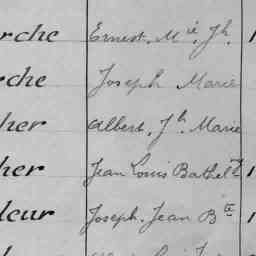 rche Ernest, M^ie, J^h.
rche Joseph Marie
her Albert, J^h Marie
her Jean Louis Bathel^y
leur Joseph, Jean B^te